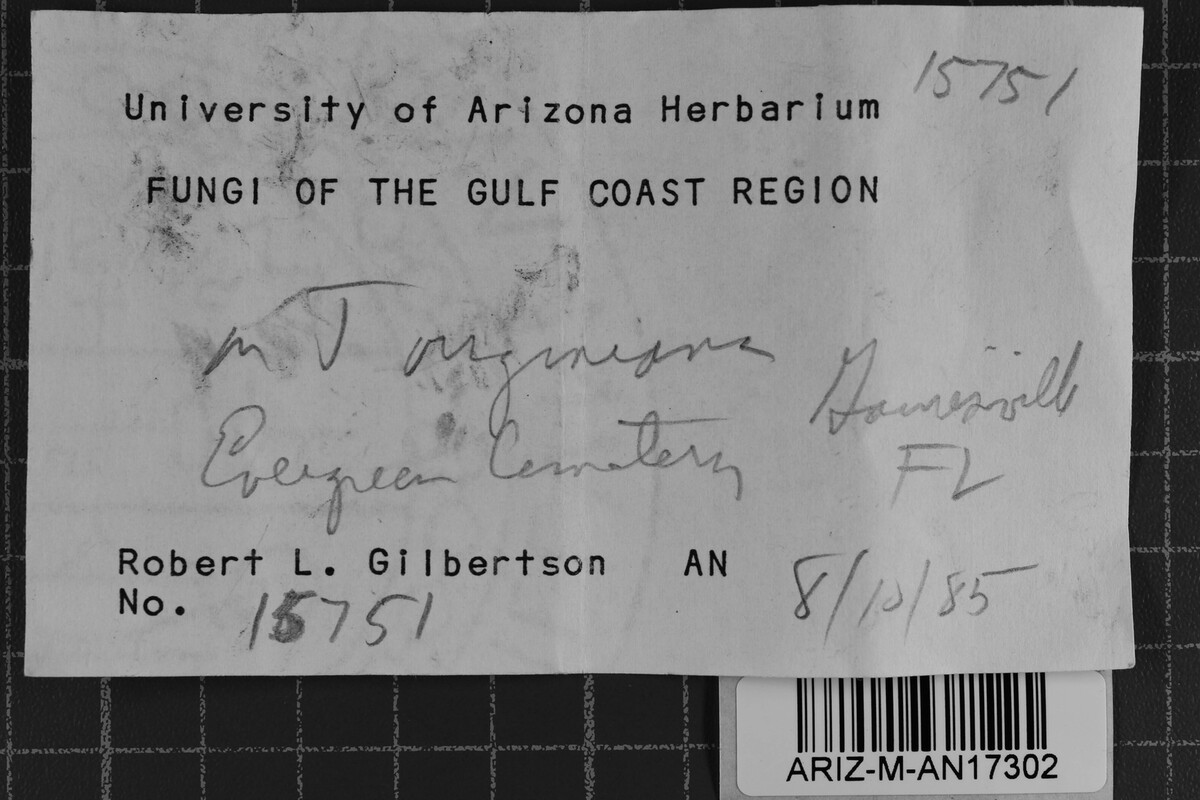 15751
University of Arizona Herbarium
FUNGI OF THE GULF COAST REGION
on J virginiana
Evergreen Cemetery
Gainesville
FL
Robert L. Gilbertson AN
No. 15751
8/10/85
ARIZ-M-AN17302